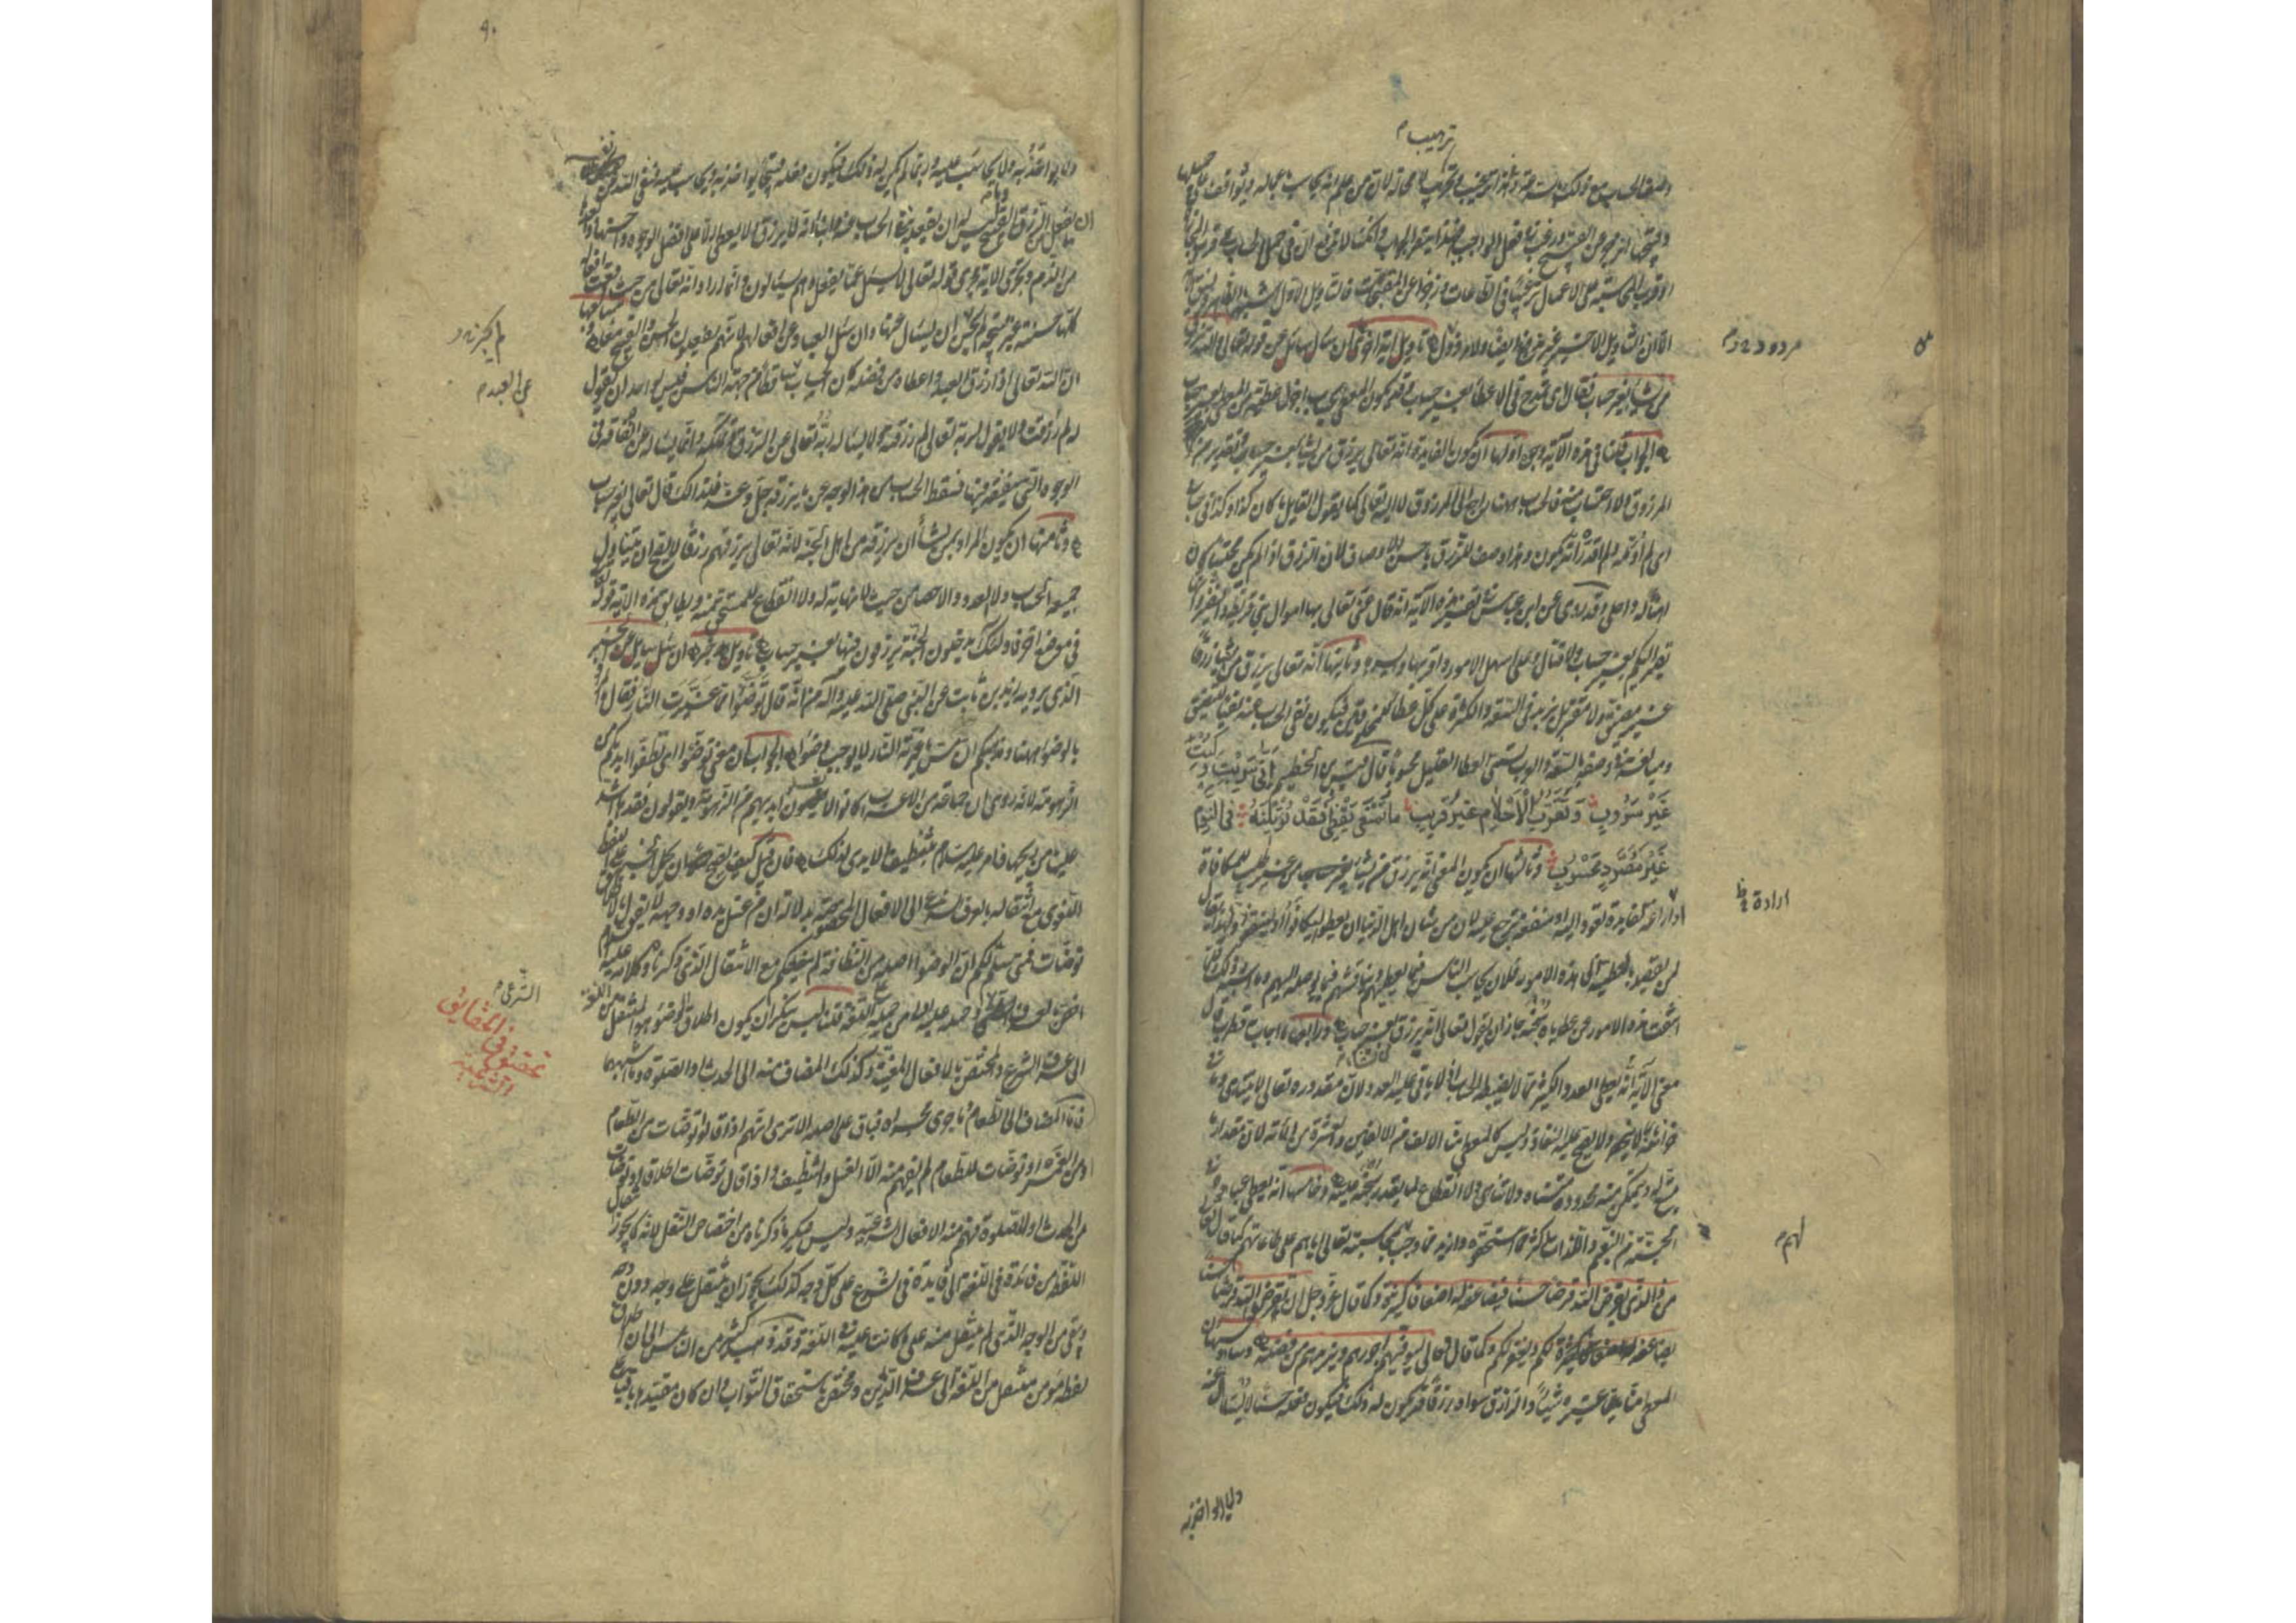 ترهيب م
وصف الحساب مع ذلك بالسرعة وفي هذا ترغيب وترهيب لا محالة لان من علم انه يحاسب بأعماله ويواقف على جميلها
وقبيحها انزجر عن القبيح ورغب في فعل الواجب فهذا ينصر الجواب وان كنا لا ندفع ان في حمل الحساب على قرب المجازاة
او قرب المحاسبة على الاعمال ترغيبا في الطاعات وزجرا عن المقبحات فالتأويل الاول اشبه بالظاهر ونسق الآية
الا ان التأويل الاخير غير مدفوع ايضا ولا مردود تأويل آية اخرى ان سأل سائل عن قوله تعالى والله يرزق
من يشاء بغير حساب فقال اي تمدح في الاعطاء بغير حساب وقد يكون المعطي بحساب اجزل عطية من المعطي بغير حساب
الجواب قلنا في هذه الآية وجوه اولها ان يكون الفائدة انه تعالى يرزق من يشاء بغير حساب تقدير من
المرزوق ولا احتساب منه فالحساب ههنا راجع الى المرزوق لا اليه تعالى كما يقول القائل ما كان كذا وكذا في حسابي
اي لم اؤمله ولم اقدر انه يكون وهذا وصف للرزق باحسن الاوصاف لان الرزق اذا لم يكن محتسبا كان
اهنأ له واحلى وقد روي عن ابن عباس في تفسير هذه الآية انه قال عنى تعالى بها اموال بني قريظة والنضير وانها
تصير اليكم بغير حساب ولا قتال وعلى اسهل الامور واقربها وايسرها وثانيها انه تعالى يرزق من يشاء رزقا
غير مضيق ولا مقتر بل يزيد في السعة والكثرة على كل عطاء للمخلوقين فيكون نفي الحساب عنه نفيا للتضييق
ومبالغة في وصفه بالسعة والعرب تسمي العطاء القليل محسوبا قال قيس بن الخطيم اني سريت وكنت
غير سروب وتقرب الاحلام غير قريب ما تمنعي يقظى فقد تؤتينه في النوم
غير مصرد محسوب وثالثها ان يكون المعنى انه يرزق من يشاء بغير حساب من غير طلب للمكافاة
او اراغة لفائدة تعود اليه او منفعة ترجع عليه لان من شأن اهل الدنيا ان يعطوا ليكافؤا او لينتفعوا ولهذا يقال
لمن يقصد بالعطية الى هذه الامور فلان يحاسب الناس فيما يعطيهم ويناقشهم فيما يوصله اليهم وما اشبه ذلك فلما
انتفت هذه الامور عن عطاياه سبحانه جاز ان يقول تعالى انه يرزق بغير حساب ورابعها ما اجاب قطرب قال
معنى الآية انه يعطي العدد الكثير مما لا يضبطه الحساب او لا يأتي عليه العدد لان مقدوره تعالى لا يتناهى وما في
خزائنه لا ينحصر ولا يصح عليه النفاد وليس كالمعطي منا الالف من الالفين والعشرة من المائة لان مقدار ما
يتسع له ويتمكن منه محدود متناه ولا تناهي ولا انقطاع لما يقدر سبحانه عليه وخامسها انه يعطي عباده في
الجنة من النعيم واللذات اكثر مما استحقوه وازيد مما وجب بمحاسبته تعالى اياهم على طاعاتهم كما قال تعالى
من ذا الذي يقرض الله قرضا حسنا فيضاعفه له اضعافا كثيرة وكما قال عز وجل ان تقرضوا الله قرضا حسنا
يضاعفه لكم ويغفر لكم وكما قال تعالى ليوفيهم اجورهم ويزيدهم من فضله وسادسها ان
المعطي منا غيره شيئا والرازق سواه رزقا قد يكون له ذلك فيكون فعله حسنا لا يسأل عنه
ولا يؤاخذ به
مردود م
ارادة
لهم م
٩٠
ولا يؤاخذ به ولا يحاسب عليه وربما لم يكن له ذلك فيكون فعله قبيحا يؤاخذ به ويحاسب عليه فنفى الله تعالى عن نفسه
ان يفعل من الرزق القبيح وما ليس له ان يفعله بنفي الحساب عنه وانبأ انه لا يرزق ولا يعطي الا على افضل الوجوه واحسنها وابعدها
من الذم وتجري الآية مجرى قوله تعالى لا يسئل عما يفعل وهم يسئلون وانما اراد انه تعالى من حيث وقعت افعاله
كلها حسنة غير قبيحة لم يجز ان يسأل عنها وان سئل العباد عن افعالهم لانهم يفعلون الحسن والقبيح معا وسابعها
ان الله تعالى اذا رزق العبد واعطاه من فضله كان الحساب ساقطا من جهة الناس فليس لاحد ان يقول
له لم رزقت ولا يقول لربه تعالى لم رزقته ولا يسأله ربه تعالى عن الرزق وانما يسأله عن انفاقه في
الوجوه التي ينفقه فيها فسقط الحساب من هذا الوجه عما يرزقه جل وعز فلذلك قال تعالى بغير حساب
وثامنها ان يكون المراد بمن يشاء ان يرزقه من اهل الجنة لانه تعالى يرزقهم رزقا لا يصح ان يتناول
جميعه الحساب ولا العدد والاحصاء من حيث لا نهاية له ولا انقطاع للمستحق منه ويطابق هذه الآية قوله
في موضع آخر فاولئك يدخلون الجنة يرزقون فيها بغير حساب تأويل خبر ان سأل سائل عن الخبر
الذي يرويه زيد بن ثابت عن النبي صلى الله عليه وآله من انه قال توضؤا مما غيرت النار فقال ما المراد
بالوضوء ههنا ومذهبكم ان مس ما غيرته النار لا يوجب وضوءا الجواب ان معنى توضؤا اي نظفوا ايديكم من
الزهومة لانه روي ان جماعة من الاعراب كانوا لا يغسلون ايديهم من الزهومة ويقولون فقدها اشد
علينا من ريحها فامر عليه السلام بتنظيف الايدي لذلك فان قيل كيف يصح ان يحمل الخبر على اللفظ
اللغوي مع انتقاله بالعرف الشرعي الى الافعال المخصوصة بدلالة ان من غسل يده او وجهه لا يقول بالاطلاق
توضأت فمتى سلم لكم ان الوضوء اصله من النظافة لم ينفعكم مع الانتقال الذي ذكرناه وكلامه عليه السلام
اخص بالعرف الشرعي وحمله عليه اولى من حمله على اللغة قلنا ليس ننكر ان يكون اطلاق الوضوء هو المنتقل من اللغة
الى عرف الشرع والمختص بالافعال المعينة وكذلك المضاف منه الى الحدث او الصلوة وما اشبههما
فاما المضاف الى الطعام وما جرى مجراه فباق على اصله الا ترى انهم اذا قالوا توضأت من الطعام
ومن الغمر او توضأت للطعام لم يفهم منه الا الغسل والتنظيف واذا قال توضأت اطلاقا او توضأت
من الحدث او للصلوة فهم منه الافعال الشرعية وليس ينكر ما ذكرناه من اختصاص النقل لانه كما يجوز انتقال
اللفظ من فائدة في اللغة الى فايدة في الشرع على كل وجه كذلك يجوز ان ينتقل على وجه دون وجه
ويبقى من الوجه الذي لم ينتقل منه على ما كانت عليه في اللغة وقد ذهب كثير من الناس الى ان اطلاق
لفظة مؤمن منتقل من اللغة الى عرف الدين ومختص باستحقاق الثواب وان كان مقيدها باقيا على
لم يجز
عن العبد م
الشرعي م
تحقيق في الحقايق الشرعية